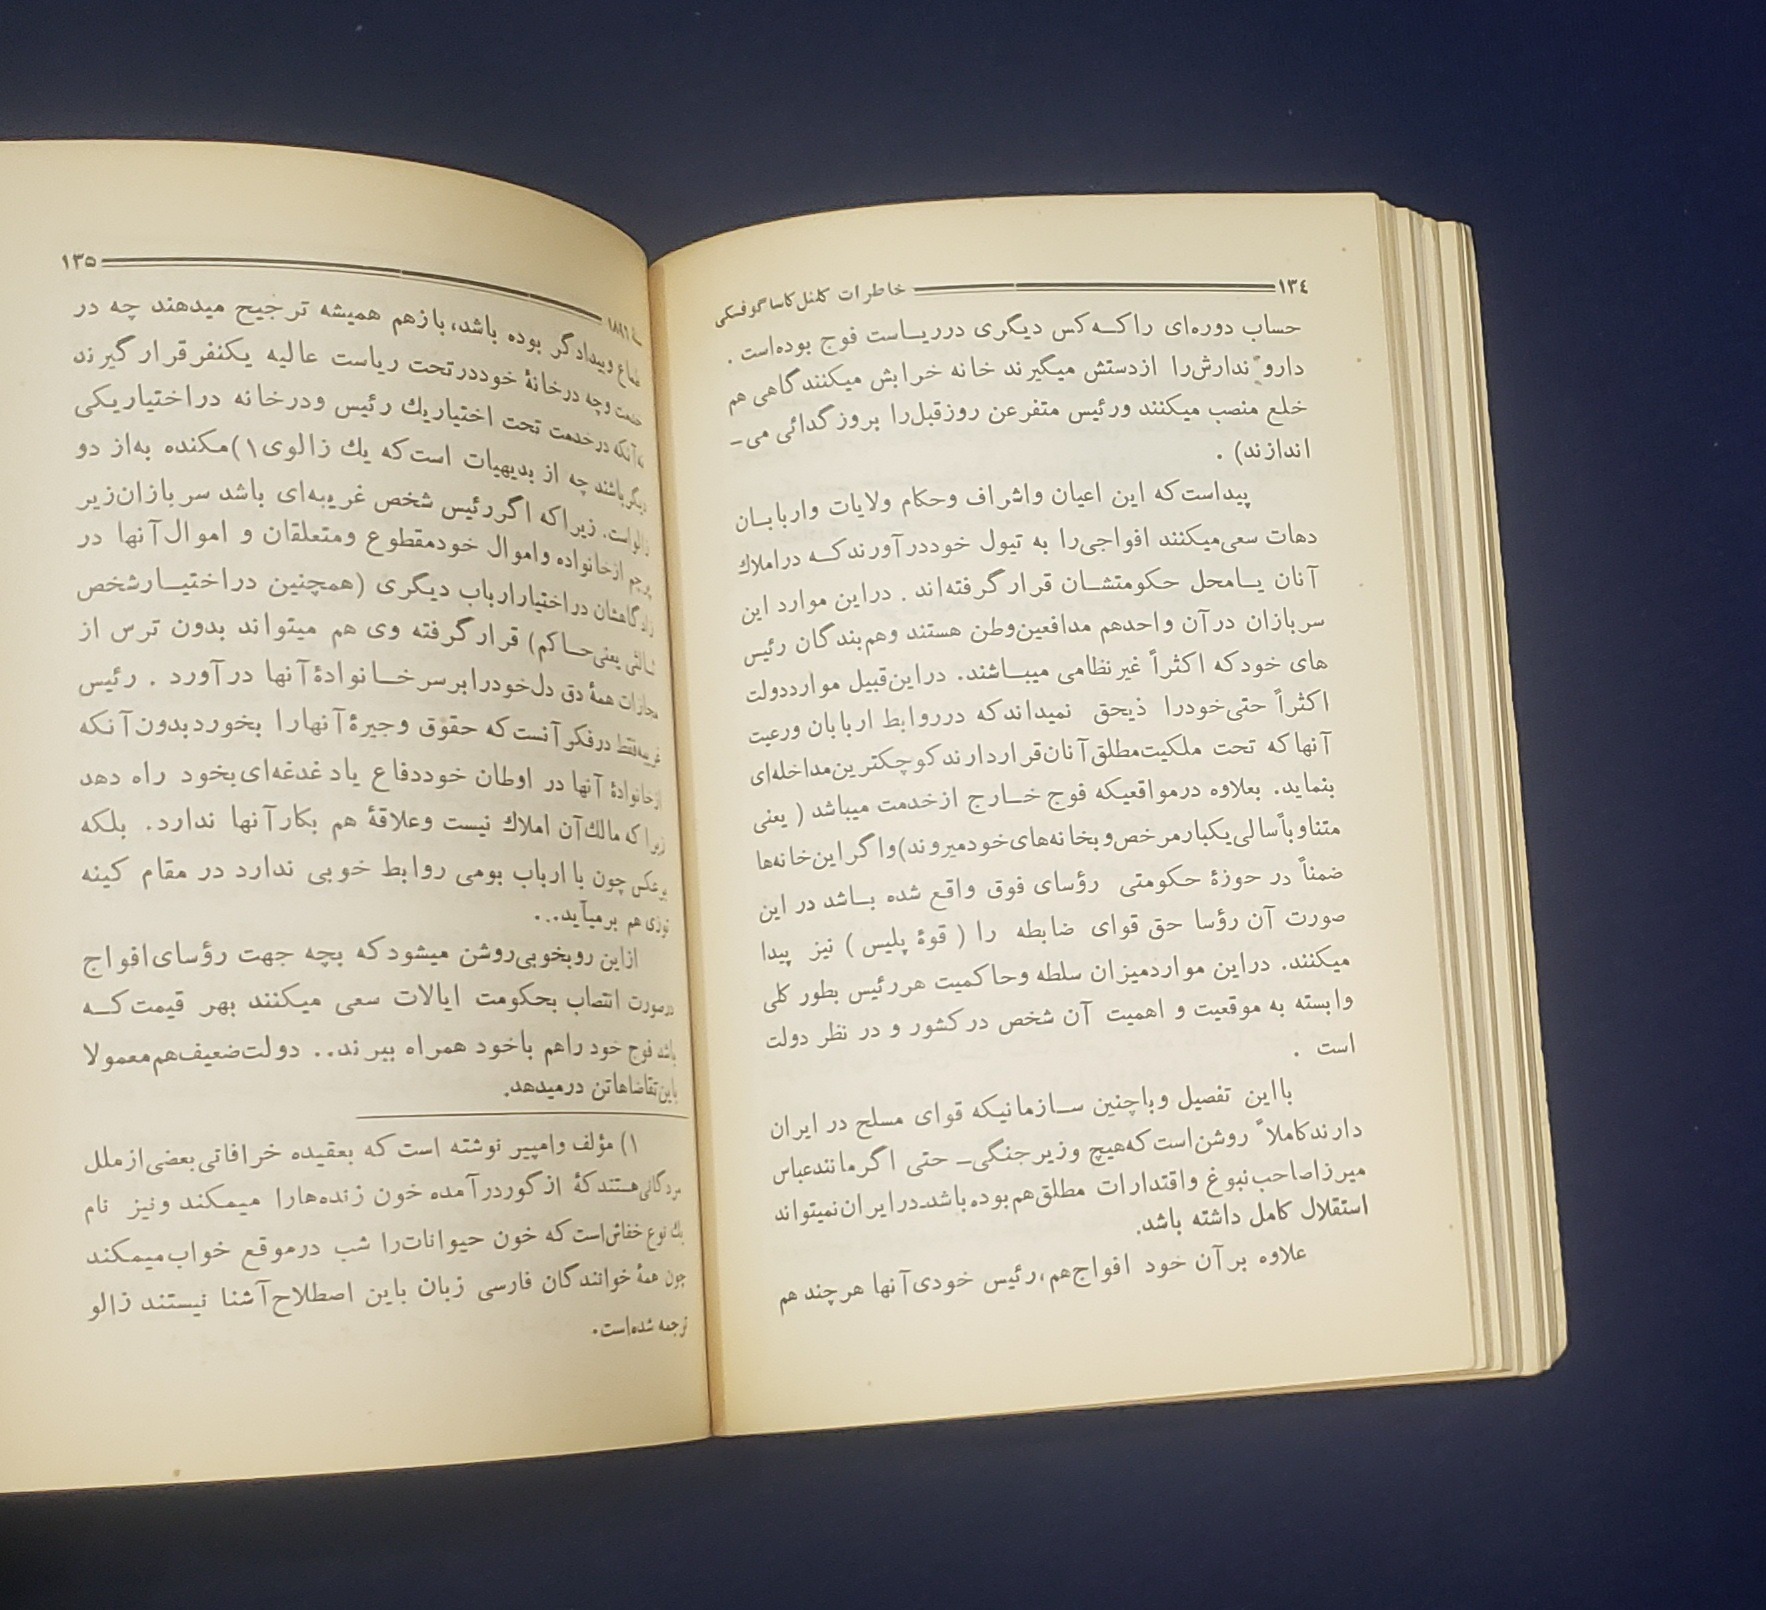 ١٣٤ خاطرات کلنل کاساگوفسکی
حساب دوره‌ای را که کس دیگری در ریاست فوج بوده است .
دارو ندارش را از دستش میگیرند خانه خرابش میکنند گاهی هم
خلع منصب میکنند ورئیس متفرعن روز قبل را بروز گدائی می-
اندازند) .
پیداست که این اعیان واشراف وحکام ولایات واربابان
دهات سعی میکنند افواجی را به تیول خود در آورند که در املاك
آنان یا محل حکومتشان قرار گرفته‌اند . در این موارد این
سربازان در آن واحد هم مدافعین وطن هستند وهم بندگان رئیس
های خود که اکثراً غیر نظامی میباشند. در این قبیل موارد دولت
اکثراً حتی خودرا ذیحق نمیداند که در روابط اربابان ورعیت
آنها که تحت ملکیت مطلق آنان قرار دارند کوچکترین مداخله‌ای
بنماید. بعلاوه در مواقعیکه فوج خارج از خدمت میباشد ( یعنی
متناوباً سالی یکبار مرخص و بخانه‌های خود میروند) واگر این خانه‌ها
ضمناً در حوزۀ حکومتی رؤسای فوق واقع شده باشد در این
صورت آن رؤسا حق قوای ضابطه را ( قوۀ پلیس ) نیز پیدا
میکنند. در این موارد میزان سلطه وحاکمیت هر رئیس بطور کلی
وابسته به موقعیت و اهمیت آن شخص در کشور و در نظر دولت
است .
با این تفصیل و با چنین سازمانیکه قوای مسلح در ایران
دارند کاملاً روشن است که هیچ وزیر جنگی- حتی اگر مانند عباس
میرزا صاحب نبوغ واقتدارات مطلق هم بوده باشد-در ایران نمیتواند
استقلال کامل داشته باشد.
علاوه بر آن خود افواج هم، رئیس خودی آنها هر چند هم
سنۀ ١٨٩٦ ١٣۵
طماع وبیدادگر بوده باشد، بازهم همیشه ترجیح میدهند چه در
خدمت وچه در خانۀ خود در تحت ریاست عالیه یکنفر قرار گیرند
نه آنکه در خدمت تحت اختیار یك رئیس ودر خانه در اختیار یکی
دیگر باشند چه از بدیهیات است که یك زالوی ١) مکنده به از دو
زالو است. زیرا که اگر رئیس شخص غریبه‌ای باشد سربازان زیر
پرچم از خانواده واموال خود مقطوع ومتعلقان و اموال آنها در
زادگاهشان در اختیار ارباب دیگری (همچنین در اختیار شخص
ثالثی یعنی حاکم) قرار گرفته وی هم میتواند بدون ترس از
مجازات همۀ دق دل خودرا بر سر خانوادۀ آنها در آورد . رئیس
غریبه فقط در فکر آنست که حقوق وجیرۀ آنهارا بخورد بدون آنکه
از خانوادۀ آنها در اوطان خود دفاع یا دغدغه‌ای بخود راه دهد
زیرا که مالك آن املاك نیست وعلاقۀ هم بکار آنها ندارد. بلکه
برعکس چون با ارباب بومی روابط خوبی ندارد در مقام کینه
توزی هم برمیآید...
از این رو بخوبی روشن میشود که بچه جهت رؤسای افواج
در صورت انتصاب بحکومت ایالات سعی میکنند بهر قیمت که
باشد فوج خود را هم با خود همراه ببرند.. دولت ضعیف هم معمولا
باین تقاضاها تن در میدهد.
١) مؤلف وامپیر نوشته است که بعقیده خرافاتی بعضی از ملل
مردگانی هستند کۀ از گور در آمده خون زنده‌هارا میمکند و نیز نام
یك نوع خفاش است که خون حیوانات را شب در موقع خواب میمکند
چون همۀ خوانندگان فارسی زبان باین اصطلاح آشنا نیستند زالو
ترجمه شده است.